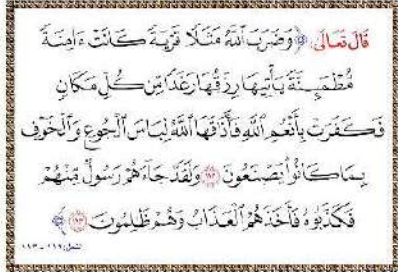 قَالَ تَعَالَى: ﴿وَضَرَبَ ٱللَّهُ مَثَلًا قَرْيَةً كَانَتْ ءَامِنَةً
مُّطْمَئِنَّةً يَأْتِيهَا رِزْقُهَا رَغَدًا مِّن كُلِّ مَكَانٍ
فَكَفَرَتْ بِأَنْعُمِ ٱللَّهِ فَأَذَٰقَهَا ٱللَّهُ لِبَاسَ ٱلْجُوعِ وَٱلْخَوْفِ
بِمَا كَانُوا۟ يَصْنَعُونَ ١١٢ وَلَقَدْ جَآءَهُمْ رَسُولٌ مِّنْهُمْ
فَكَذَّبُوهُ فَأَخَذَهُمُ ٱلْعَذَابُ وَهُمْ ظَٰلِمُونَ ١١٣﴾